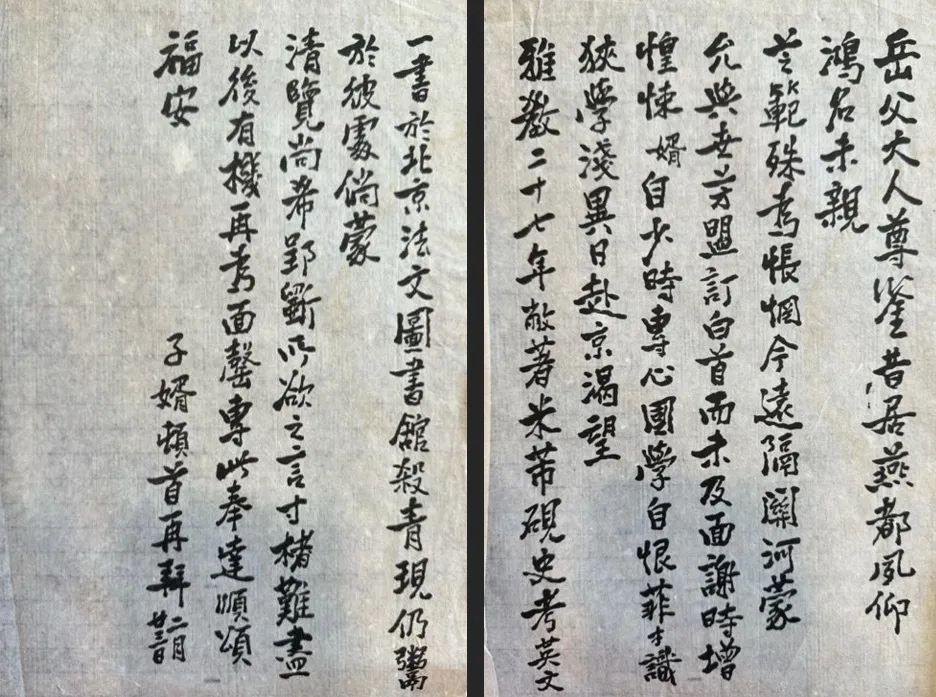 岳父大人尊鉴昔居燕都夙仰
鴻名未親
芝範殊為悵惘今遠隔關河蒙
允與世芳盟訂白首而未及面謝時增
惶悚婿自少時專心國學自恨菲才識
狹學淺異日赴京渴望
雅教二十七年敝著米芾硯史考英文
一書於北京法文圖書館殺青現仍鬻
於彼處倘蒙
清覽尚希郢斵所欲之言寸楮難盡
以後有機再為面罄專此奉達順頌
福安
子婿頓首再拜
二月廿三日